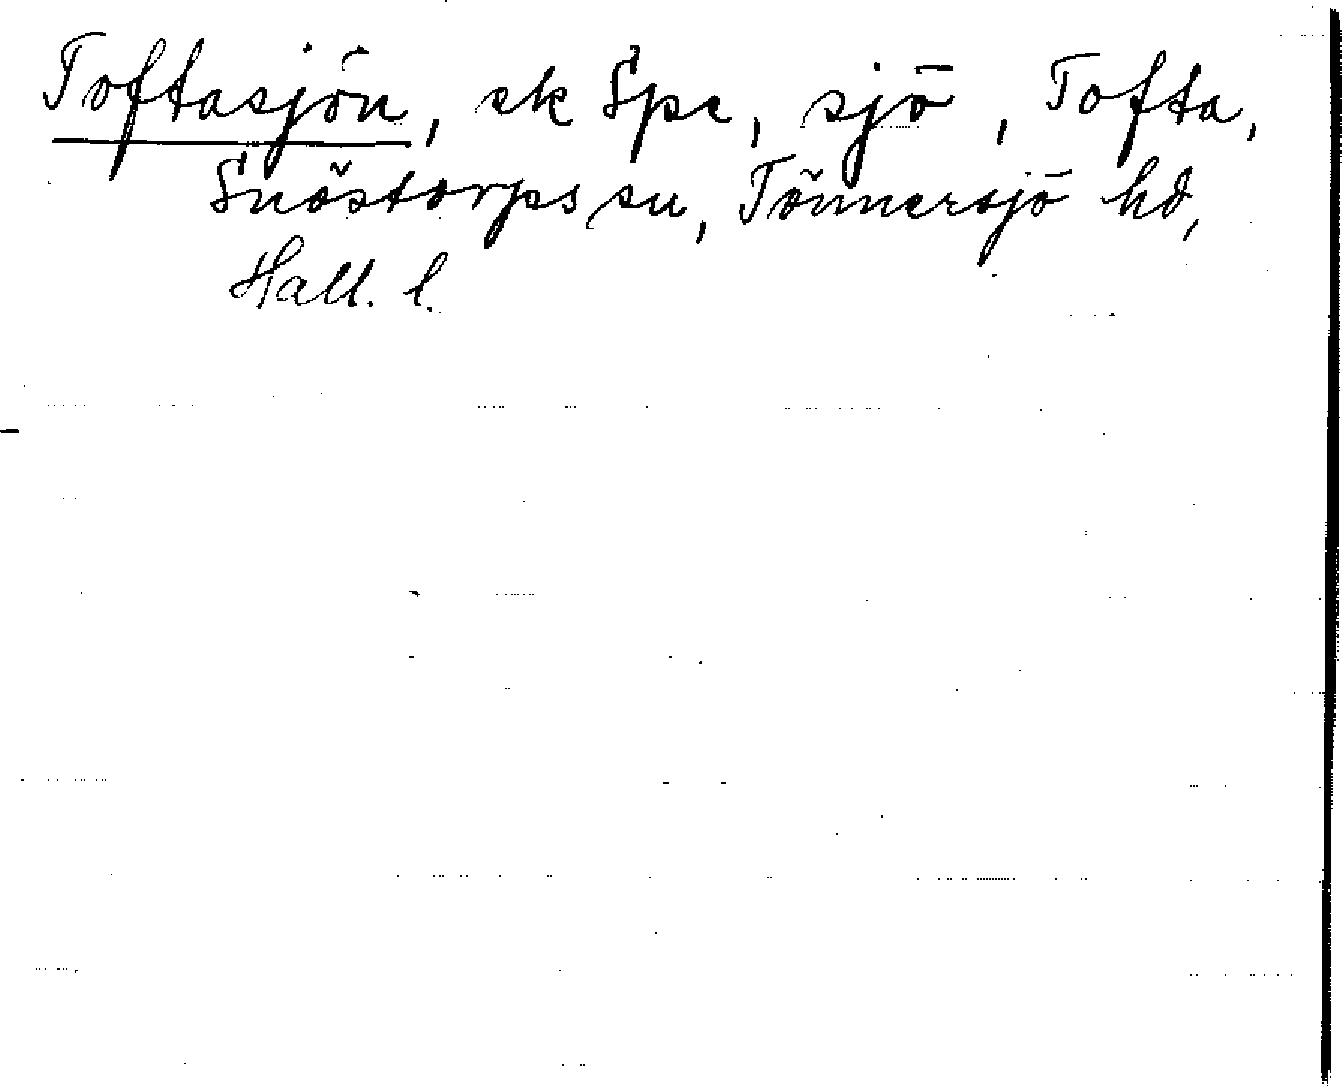 Toftasjön, ek Spe, sjö, Tofta,
Snöstorps sn, Tönnersjö hd,
Hall. l.